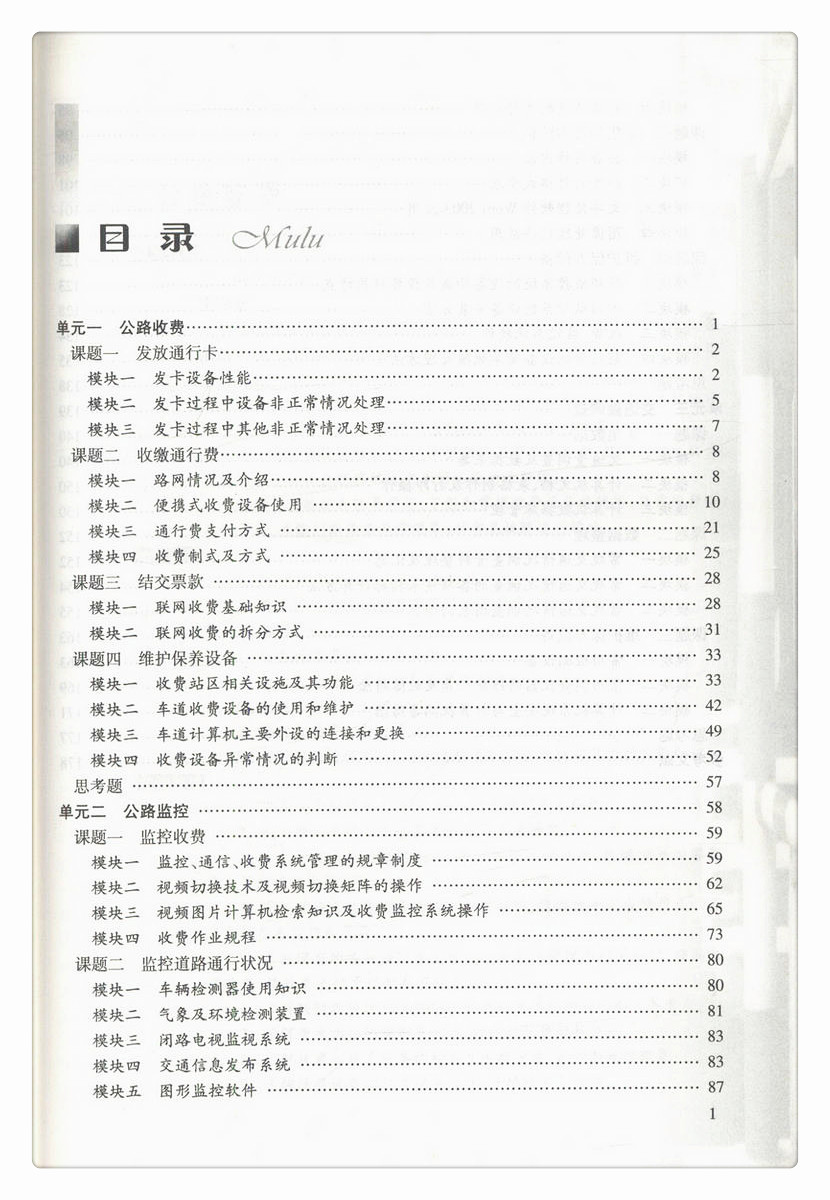 目 录 Mulu
单元一 公路收费 1
课题一 发放通行卡 2
模块一 发卡设备性能 2
模块二 发卡过程中设备非正常情况处理 5
模块三 发卡过程中其他非正常情况处理 7
课题二 收缴通行费 8
模块一 路网情况及介绍 8
模块二 便携式收费设备使用 10
模块三 通行费支付方式 21
模块四 收费制式及方式 25
课题三 结交票款 28
模块一 联网收费基础知识 28
模块二 联网收费的拆分方式 31
课题四 维护保养设备 33
模块一 收费站区相关设施及其功能 33
模块二 车道收费设备的使用和维护 42
模块三 车道计算机主要外设的连接和更换 49
模块四 收费设备异常情况的判断 52
思考题 57
单元二 公路监控 58
课题一 监控收费 59
模块一 监控、通信、收费系统管理的规章制度 59
模块二 视频切换技术及视频切换矩阵的操作 62
模块三 视频图片计算机检索知识及收费监控系统操作 65
模块四 收费作业规程 73
课题二 监控道路通行状况 80
模块一 车辆检测器使用知识 80
模块二 气象及环境检测装置 81
模块三 闭路电视监视系统 83
模块四 交通信息发布系统 83
模块五 图形监控软件 87
1